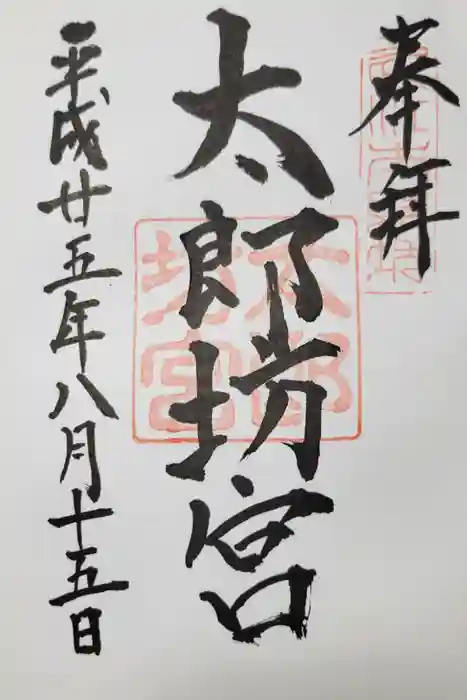 奉拝
太郎坊宮
平成廿五年八月十五日
太郎
坊宮